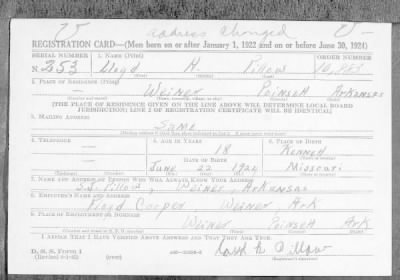 address changed
REGISTRATION CARD—(Men born on or after January 1, 1922 and on or before June 30, 1924)
SERIAL NUMBER 1. NAME (Print) ORDER NUMBER
N 253 Lloyd H. Pillow
(First) (Middle) (Last)
2. PLACE OF RESIDENCE (Print)
Weiner Poinsett Arkansas
[THE PLACE OF RESIDENCE GIVEN ON THE LINE ABOVE WILL DETERMINE LOCAL BOARD
JURISDICTION; LINE 2 OF REGISTRATION CERTIFICATE WILL BE IDENTICAL]
3. MAILING ADDRESS
Same
4. TELEPHONE 5. AGE IN YEARS 6. PLACE OF BIRTH
18 Kennett
DATE OF BIRTH
June 22 1924 Missouri
7. NAME AND ADDRESS OF PERSON WHO WILL ALWAYS KNOW YOUR ADDRESS
S.J. Pillow, Weiner, Arkansas
8. EMPLOYER'S NAME AND ADDRESS
Floyd Cooper Weiner Ark
9. PLACE OF EMPLOYMENT OR BUSINESS
Weiner Poinsett Ark
I AFFIRM THAT I HAVE VERIFIED ABOVE ANSWERS AND THAT THEY ARE TRUE.
D. S. S. Form 1